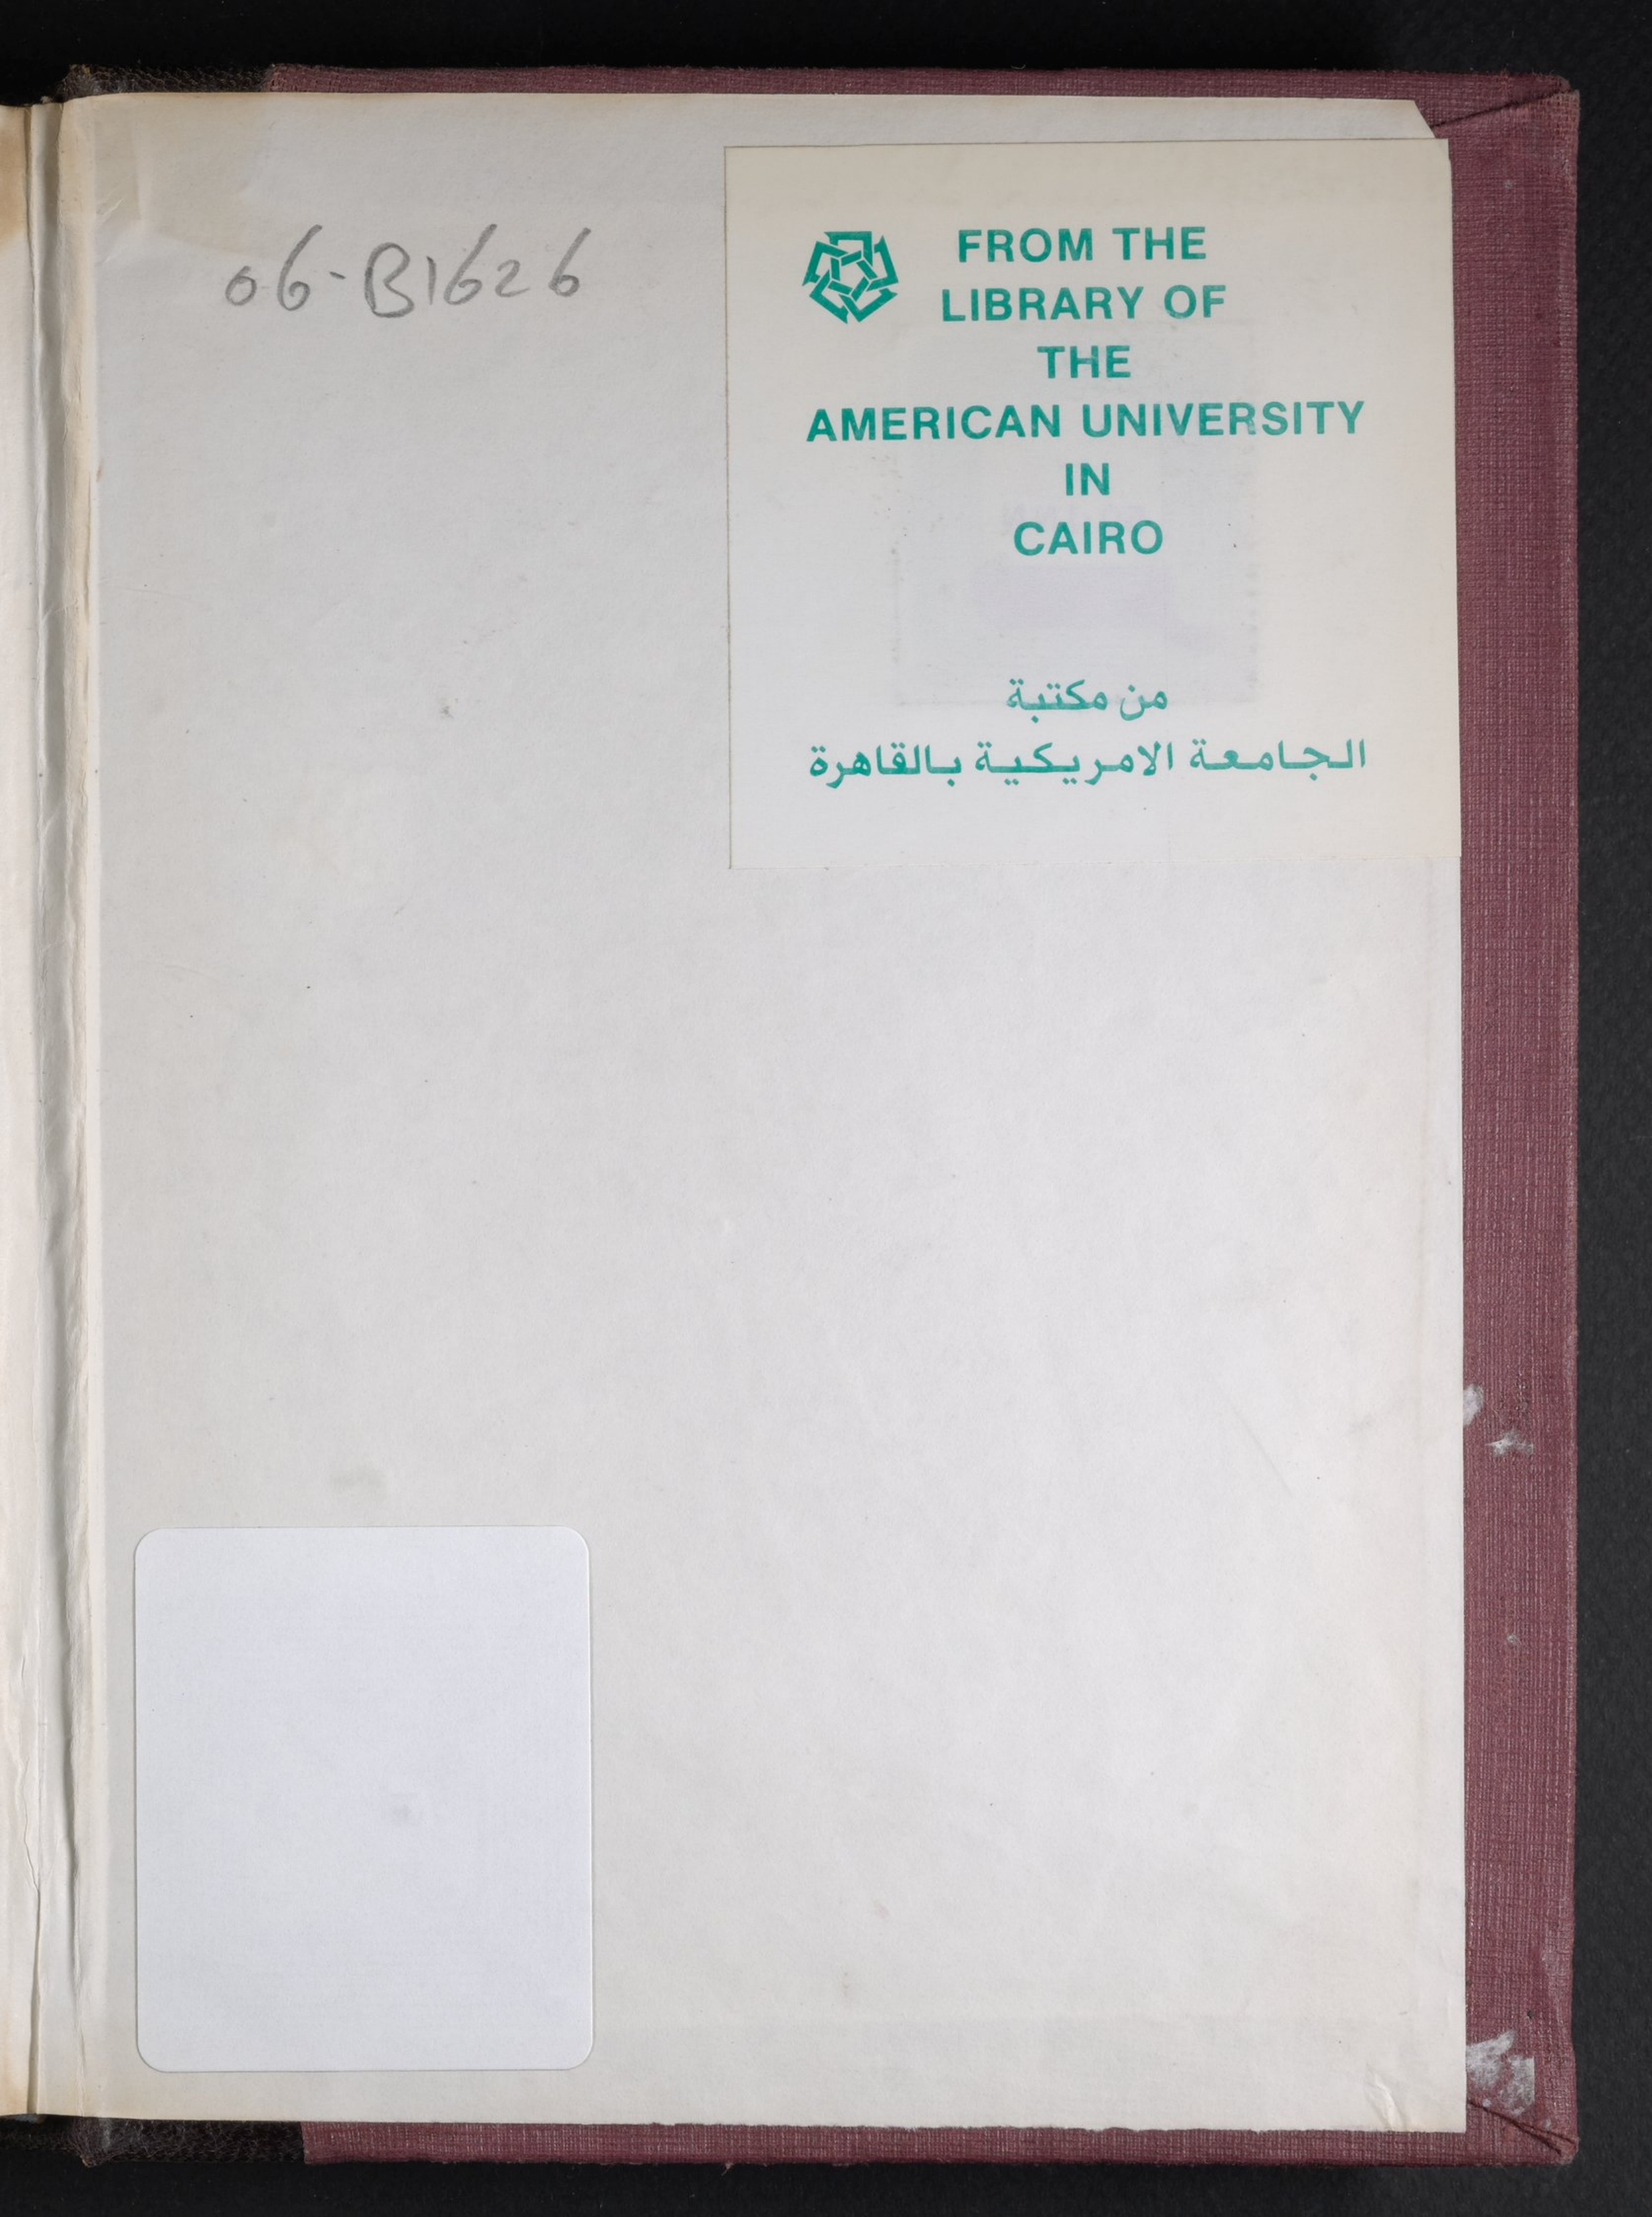 06-B1626
FROM THE
LIBRARY OF
THE
AMERICAN UNIVERSITY
IN
CAIRO
من مكتبة
الجامعة الامريكية بالقاهرة